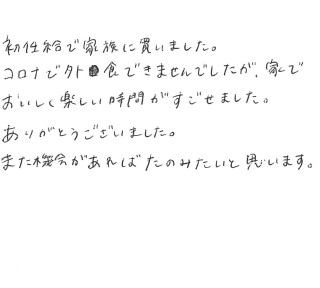 初任給で家族に買いました。
コロナで外食できませんでしたが、家で
おいしく楽しい時間がすごせました。
ありがとうございました。
また機会があればたのみたいと思います。